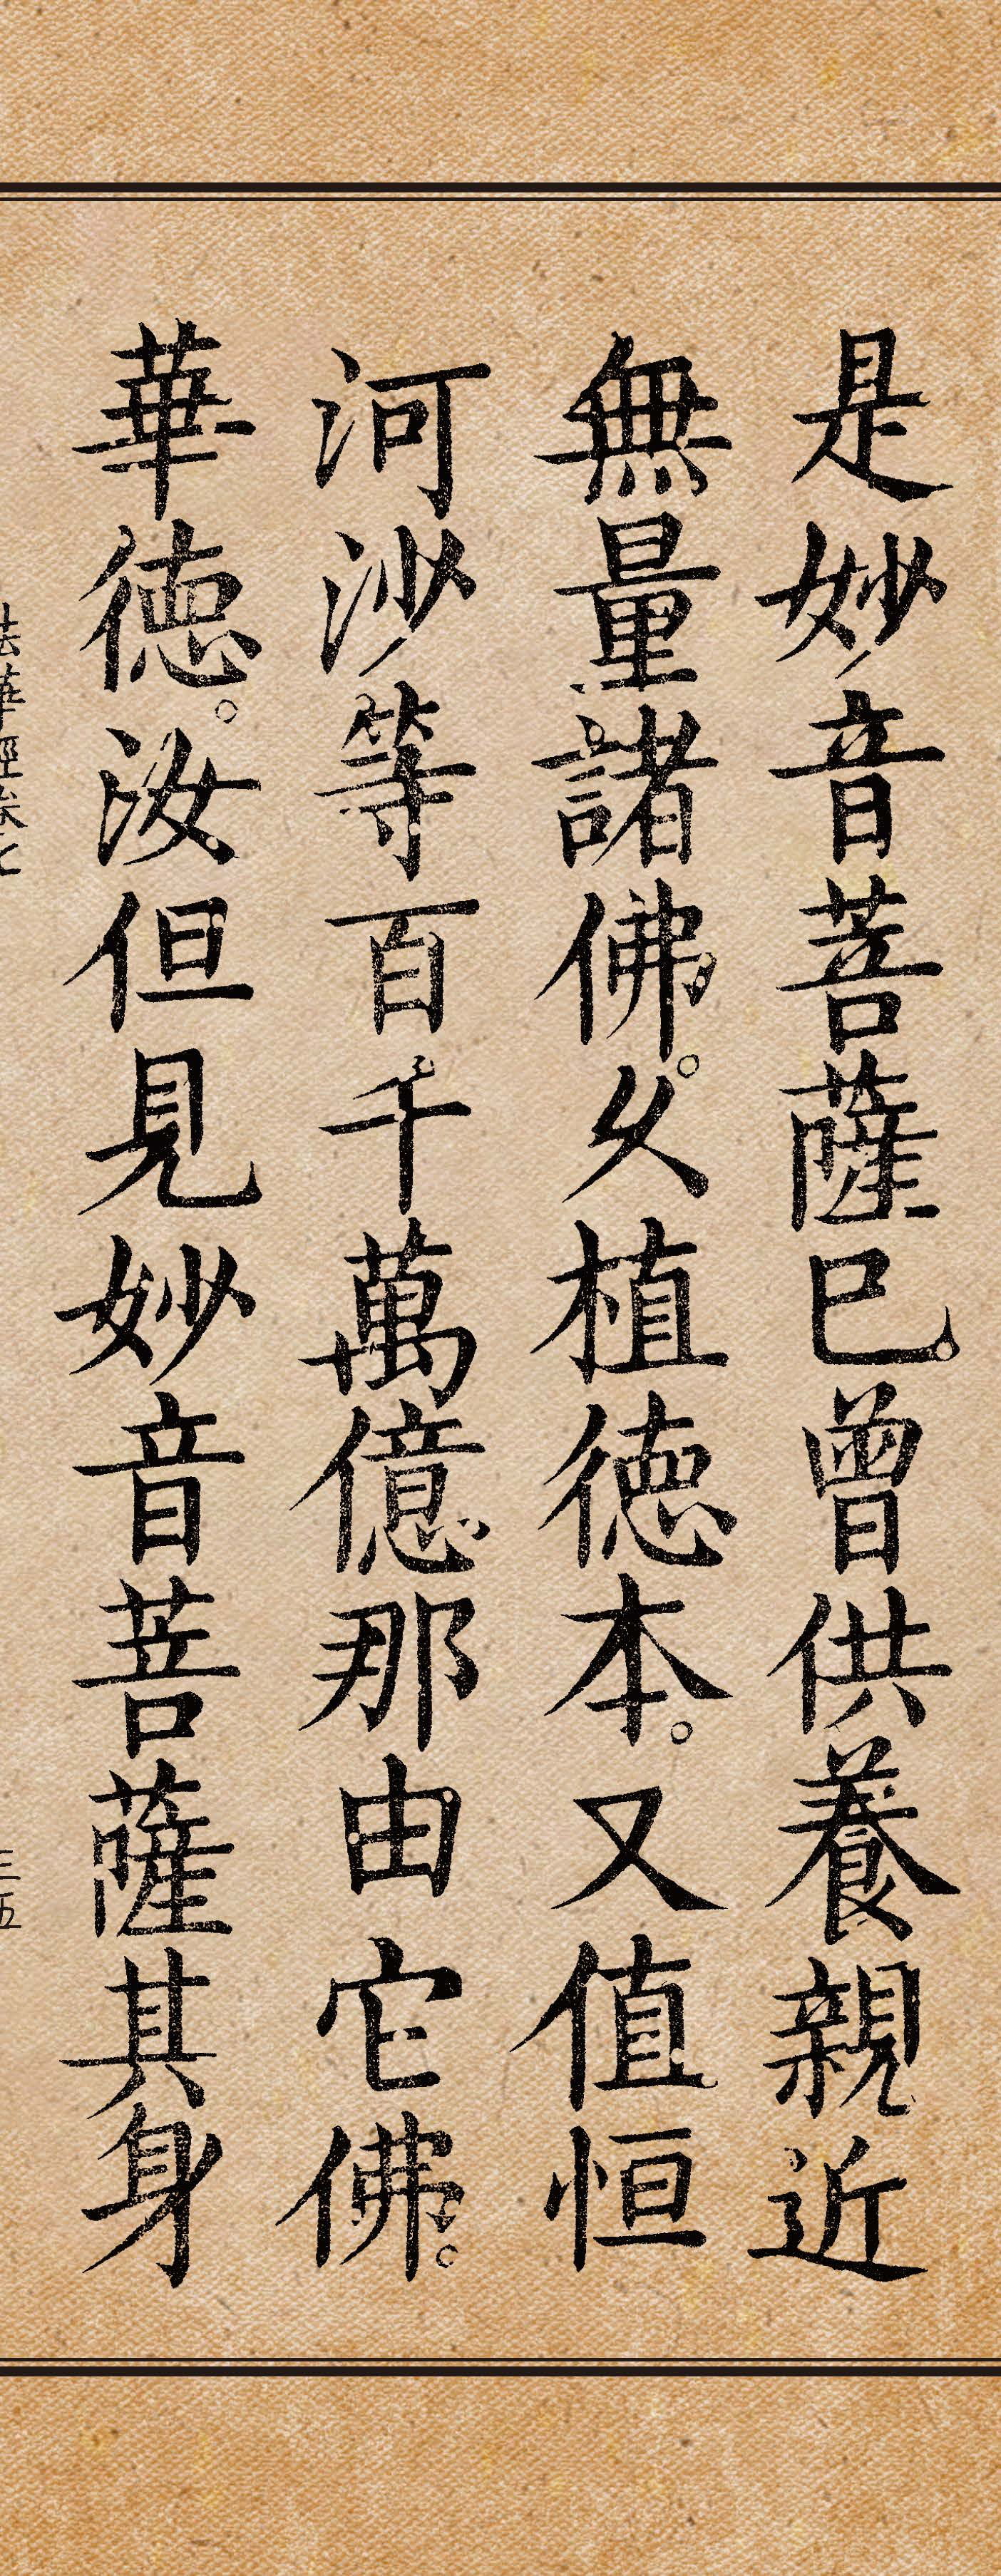 是妙音菩薩已曾供養親近
無量諸佛。久植德本。又值恒
河沙等百千萬億那由它佛。
華德。汝但見妙音菩薩其身
法華經卷七
三五